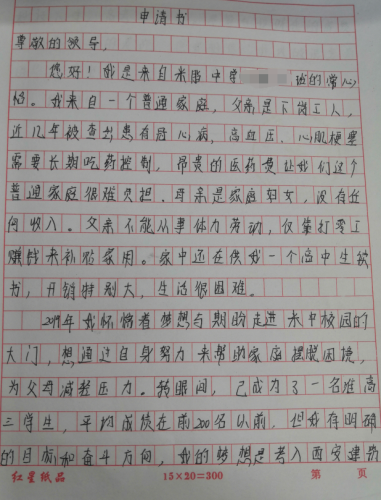 申请书
尊敬的领导,
您好!我是来自米脂中学 班的常心
格。我来自一个普通家庭,父亲是下岗工人,
近几年被查出患有冠心病,高血压,心肌梗塞
需要长期吃药控制,昂贵的医药费让我们这个
普通家庭很难负担。母亲是家庭妇女,没有任
何收入。父亲不能从事体力劳动,仅靠打零工
赚钱来补贴家用。家中还在供我一个高中生读
书,开销特别大,生活很困难。
2019年我怀揣着梦想与期盼走进米中校园的
大门,想通过自身努力来帮助家庭摆脱困境,
为父母减轻压力。转眼间,已成为了一名准高
三学生,平均成绩在前200名以前,但我有明确
的目标和奋斗方向,我的梦想是考入西安建筑
红星纸品 15×20=300 第 页